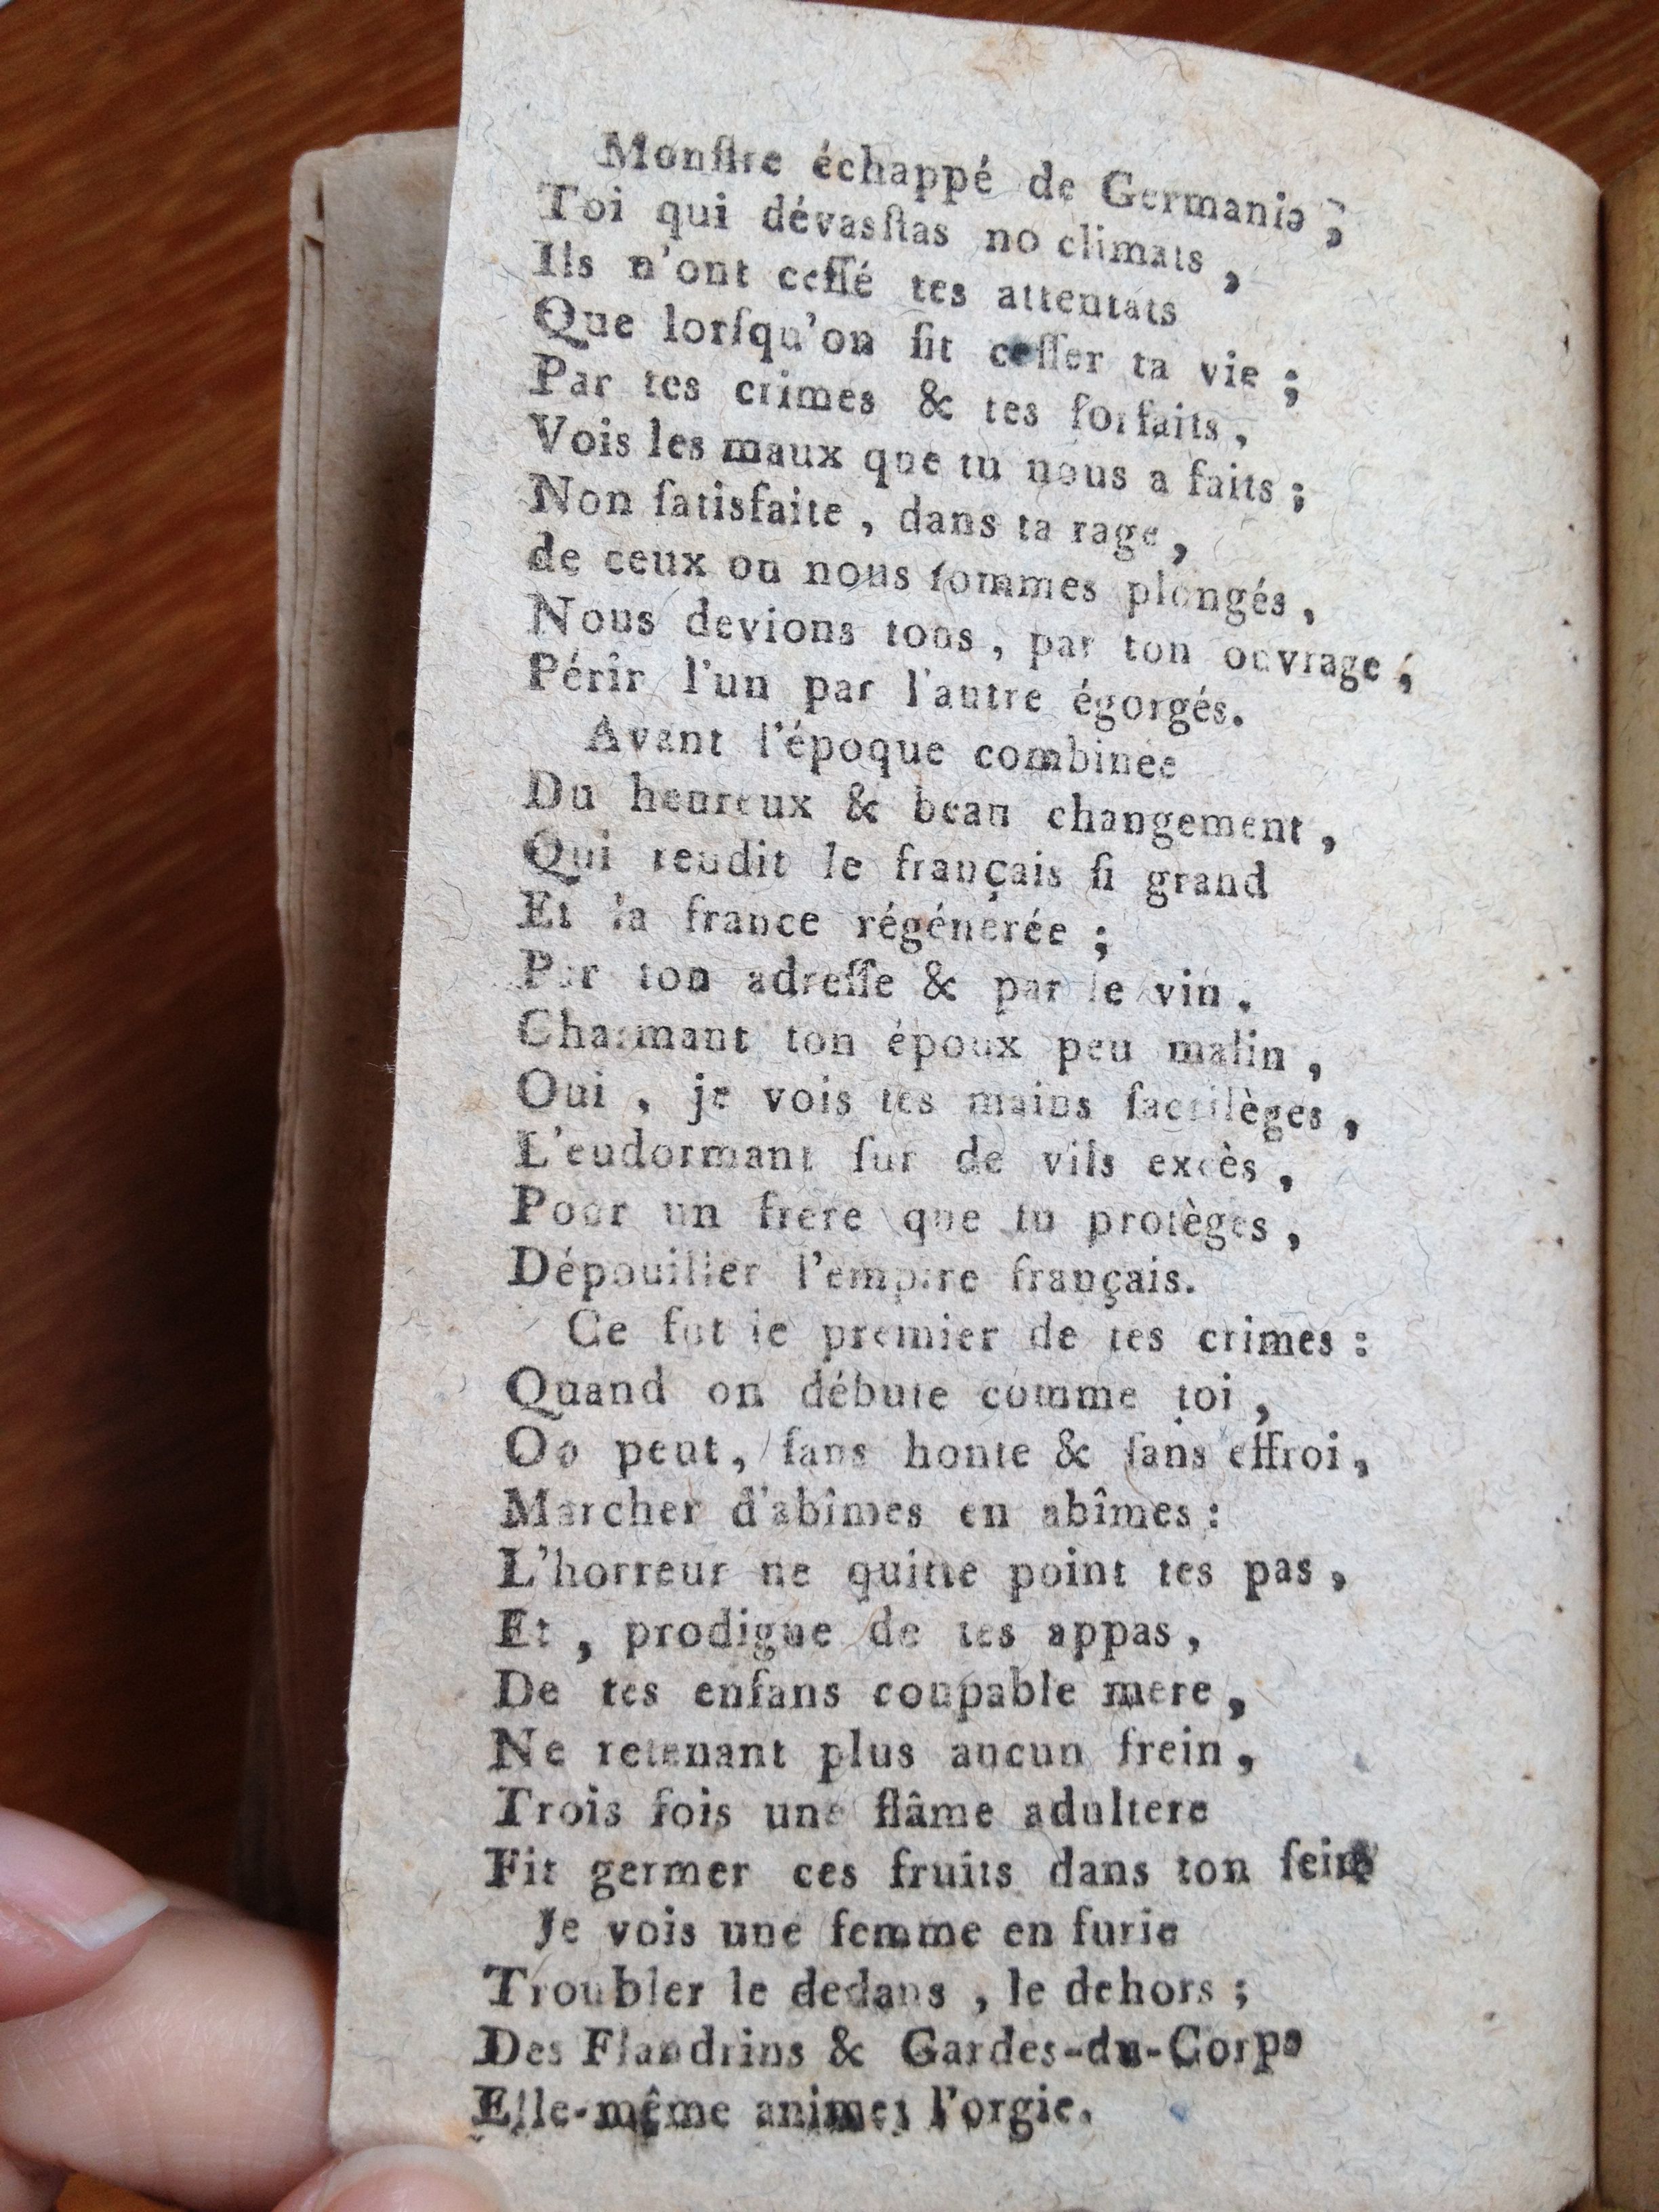 Monſtre échappé de Germanie ;
Toi qui dévasſtas no climats ,
Ils n'ont ceſſé tes attentats
Que lorſqu'on fit ceſſer ta vie ;
Par tes crimes & tes forfaits ,
Vois les maux que tu nous a faits ;
Non ſatisfaite , dans ta rage ,
de ceux ou nous ſommes plongés ,
Nous devions tous , par ton ouvrage ,
Périr l'un par l'autre égorgés.
Avant l'époque combinée
Du heureux & beau changement ,
Qui rendit le français ſi grand
Et la france régénérée ;
Par ton adreſſe & par le vin .
Charmant ton époux peu malin ,
Oui , je vois tes mains ſacrilèges ,
L'endormant ſur de vils excès ,
Pour un frere que tu protèges ,
Dépouiller l'empire français.
Ce fut le premier de tes crimes :
Quand on débute comme toi ,
On peut , ſans honte & ſans effroi ,
Marcher d'abîmes en abîmes :
L'horreur ne quitte point tes pas ,
Et , prodigue de tes appas ,
De tes enfans coupable mere ,
Ne retenant plus aucun frein ,
Trois fois une flâme adultere
Fit germer ces fruits dans ton ſein
Je vois une femme en furie
Troubler le dedans , le dehors ;
Des Flandrins & Gardes-du-Corps
Elle-même animer l'orgie.